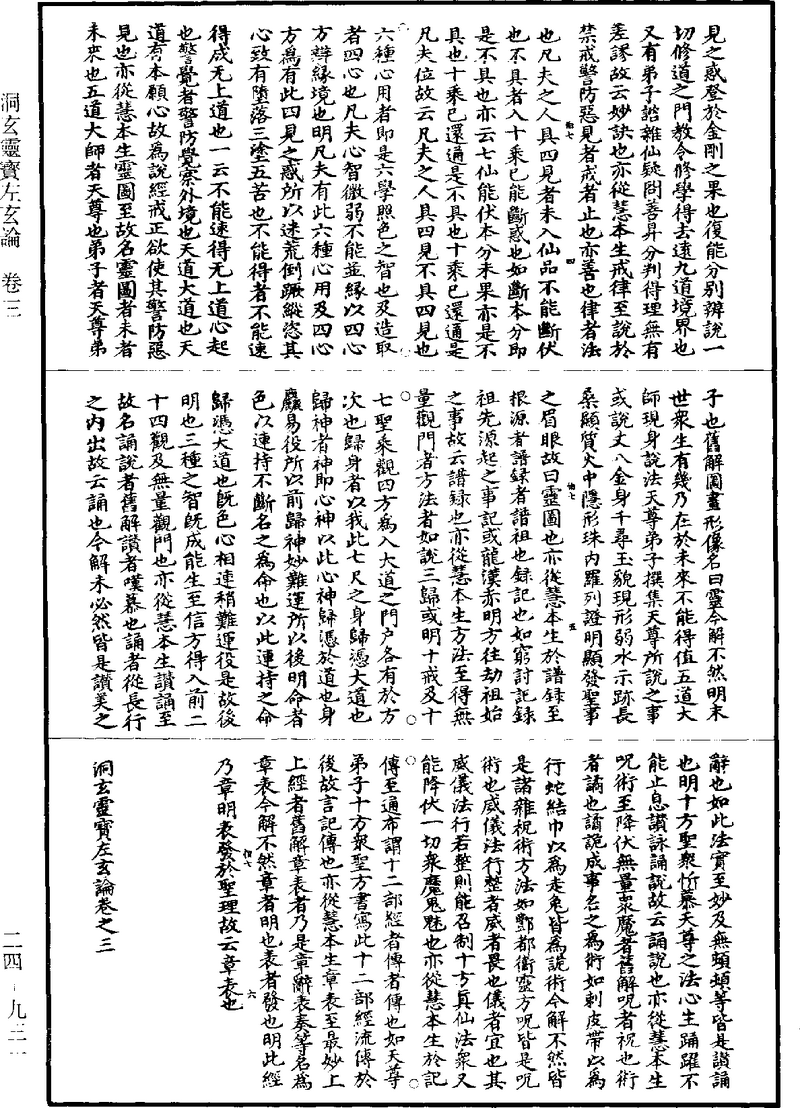 洞玄靈寶左玄論 卷三
二四-九三一
見之惑登於金剛之果也復能分別辨說一
切修道之門教令修學得去遠九道境界也
又有弟子諮雜仙疑問善昇分判得理無有
差謬故云妙訣也亦從慧本生戒律至說於
禁戒警防惡見者戒者止也亦善也律者法
也凡夫之人具四見者未入仙品不能斷伏
也不具者入十乘已能斷惑也如斷本分即
是不具也亦云七仙能伏本分未果亦是不
具也十乘已還通是不具也十乘已還通是
凡夫位故云凡夫之人具四見不具四見也
六種心用者即是六學照色之智也及造取
者四心也凡夫心智微弱不能並緣以四心
方辯緣境也明凡夫有此六種心用及四心
方為有此四見之惑所以迷荒倒蹶縱恣其
心致有墮落三塗五苦也不能得者不能速
得成无上道也一云不能速得无上道心起
也警覺者警防覺察外境也天道大道也天
道有本願心故為說經戒正欲使其警防惡
見也亦從慧本生靈圖至故名靈圖者未者
未來也五道大師者天尊也弟子者天尊弟
子也舊解圖畫形像名曰靈今解不然明末
世衆生有幾乃在於未來不能得值五道大
師現身說法天尊弟子撰集天尊所說之事
或說丈八金身千尋玉貌現形弱水示跡長
桑顯質火中隱形珠内羅列證明顯發聖事
之眉眼故曰靈圖也亦從慧本生於譜録至
根源者譜録者譜祖也録記也如窮討記録
祖先源起之事記或龍漢赤明方往劫祖始
之事故云譜録也亦從慧本生方法至得無
量觀門者方法者如說三歸或明十戒及十
七聖乘觀四方為入大道之門户各有於方
次也歸身者以我此七尺之身歸憑大道也
歸神者神即心神以此心神歸憑於道也身
麤易役所以前歸神妙難運所以後明命者
色以連持不斷名之為命也以此連持之命
歸憑大道也旣色心相連稍難運役是故後
明也三種之智旣成能生至信方得入前二
十四觀及無量觀門也亦從慧本生讚誦至
故名誦說者舊解讚者嘆慕也誦者從長行
之内出故云誦也今解未必然皆是讚美之
辭也如此法實至妙及無頭頰等皆是讚誦
也明十方聖衆忻慕天尊之法心生踊躍不
能止息讚詠誦說故云誦說也亦從慧本生
呪術至降伏無量衆魔者舊解呪者祝也術
者譎也譎詭成事名之為術如剌皮帶以為
行蛇結巾以為走兔皆為詭術今解不然皆
是諸雜祝術方法如酆都衞靈方呪皆是呪
術也威儀法行整者威者畏也儀者宜也其
威儀法行若整則能召制十方真仙法衆又
能降伏一切衆魔鬼魅也亦從慧本生於記
傳至通布謂十二部經者傳者傳也如天尊
弟子十方衆聖方書寫此十二部經流傳於
後故言記傳也亦從慧本生章表至最妙上
上經者舊解章表者乃是章辭表奏等名為
章表今解不然章者明也表者發也明此經
乃章明表發於聖理故云章表也
洞玄靈寶左玄論卷之三